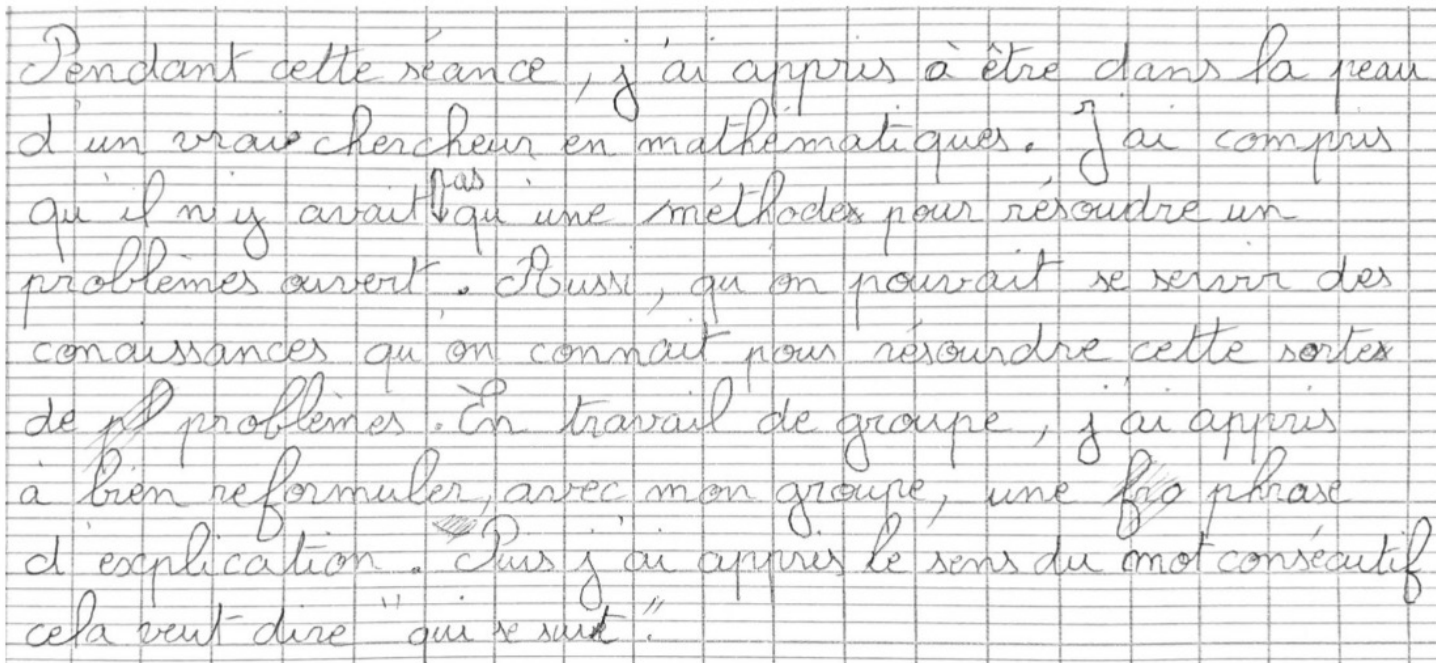 Pendant cette séance, j'ai appris à être dans la peau
d'un vrai chercheur en mathématiques. J'ai compris
qu'il n'y avait pas qu'une méthode pour résoudre un
problèmes ouvert. Aussi, qu'on pouvait se servir des
conaissances qu'on connait pour résoundre cette sorte
de problèmes. En travail de groupe, j'ai appris
à bien reformuler, avec mon groupe, une phrase
d'explication. Puis j'ai appris le sens du mot consécutif
cela veut dire "qui se suit".